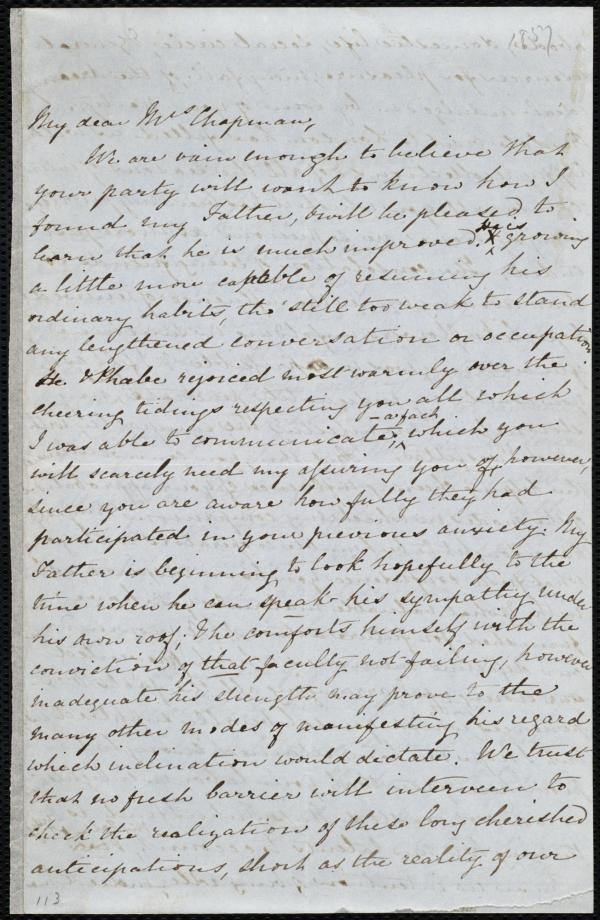 (1855)
My dear Mrs Chapman,
We are vain enough to believe that
your party will want to know how I
found my Father, & will be pleased to
learn that he is much improved, & is growing
a little more capable of resuming his
ordinary habits, tho' still too weak to stand
any lengthened conversation or occupation.
He & Phoebe rejoiced most warmly over the
cheering tidings respecting you all which
I was able to communicate, – a fact which you
will scarcely need my assuring you of, however,
since you are aware how fully they had
participated in your previous anxiety. My
Father is beginning to look hopefully to the
time when he can speak his sympathy under
his own roof; & he comforts himself with the
conviction of that faculty not failing, however
inadequate his strength may prove to the
many other modes of manifesting his regard
which inclination would dictate. We trust
that no fresh barrier will interveen to
check the realization of these long cherished
anticipations, short as the reality of our
113